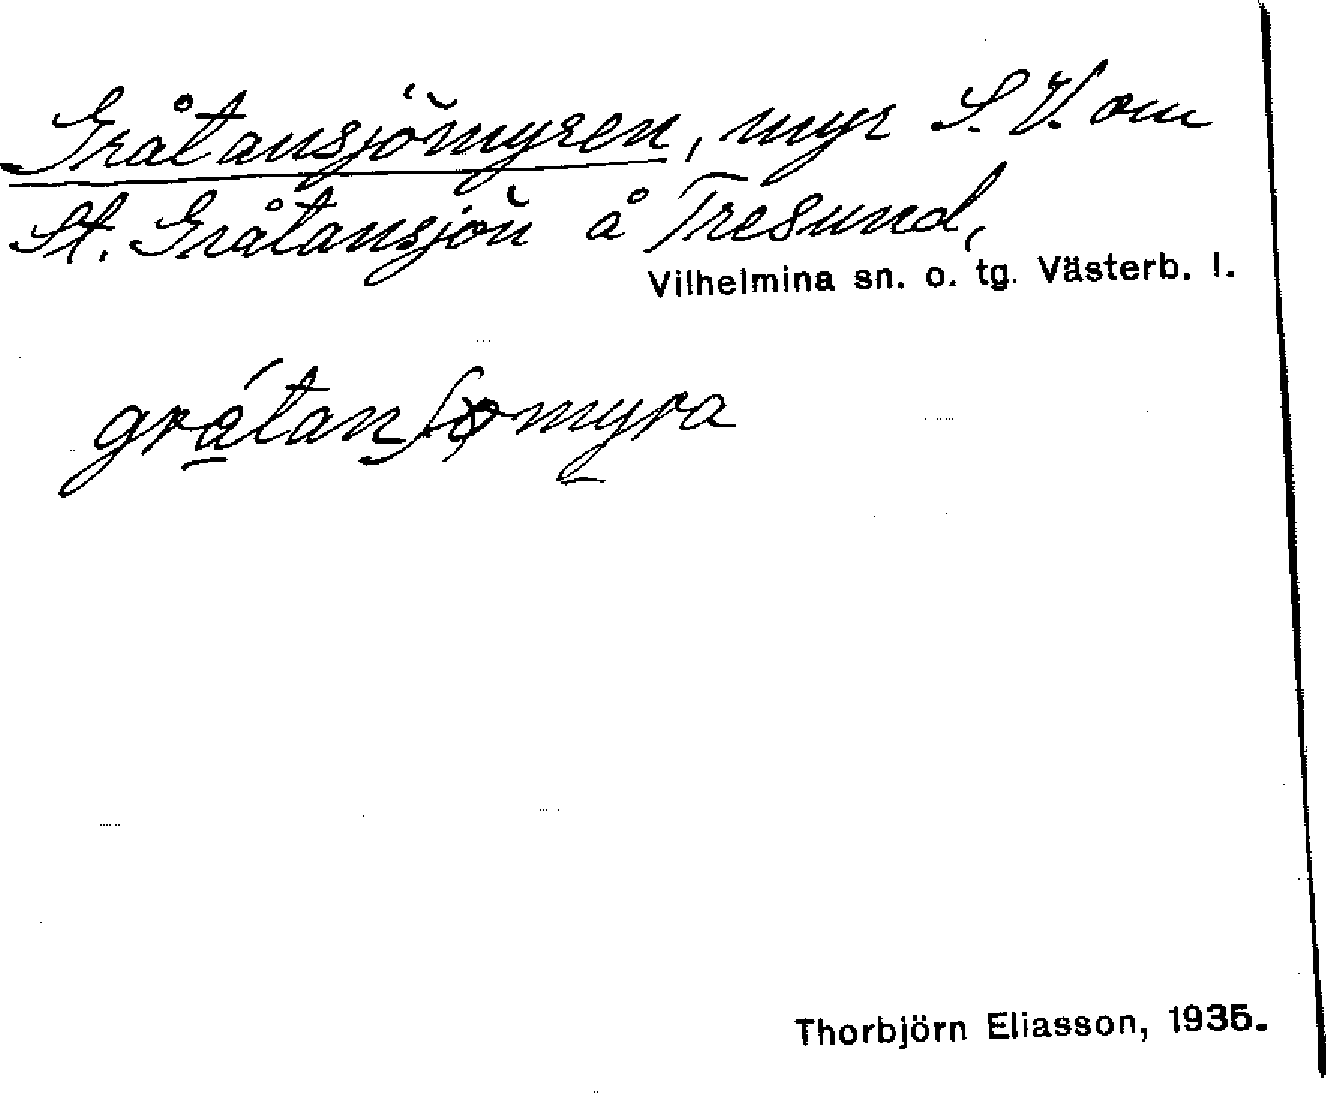 Gråtansjömyren, myr S.V. om
St. Gråtansjön å Tresund,
Vilhelmina sn. o. tg. Västerb. l.
gråtanʃømyra
Thorbjörn Eliasson, 1935.